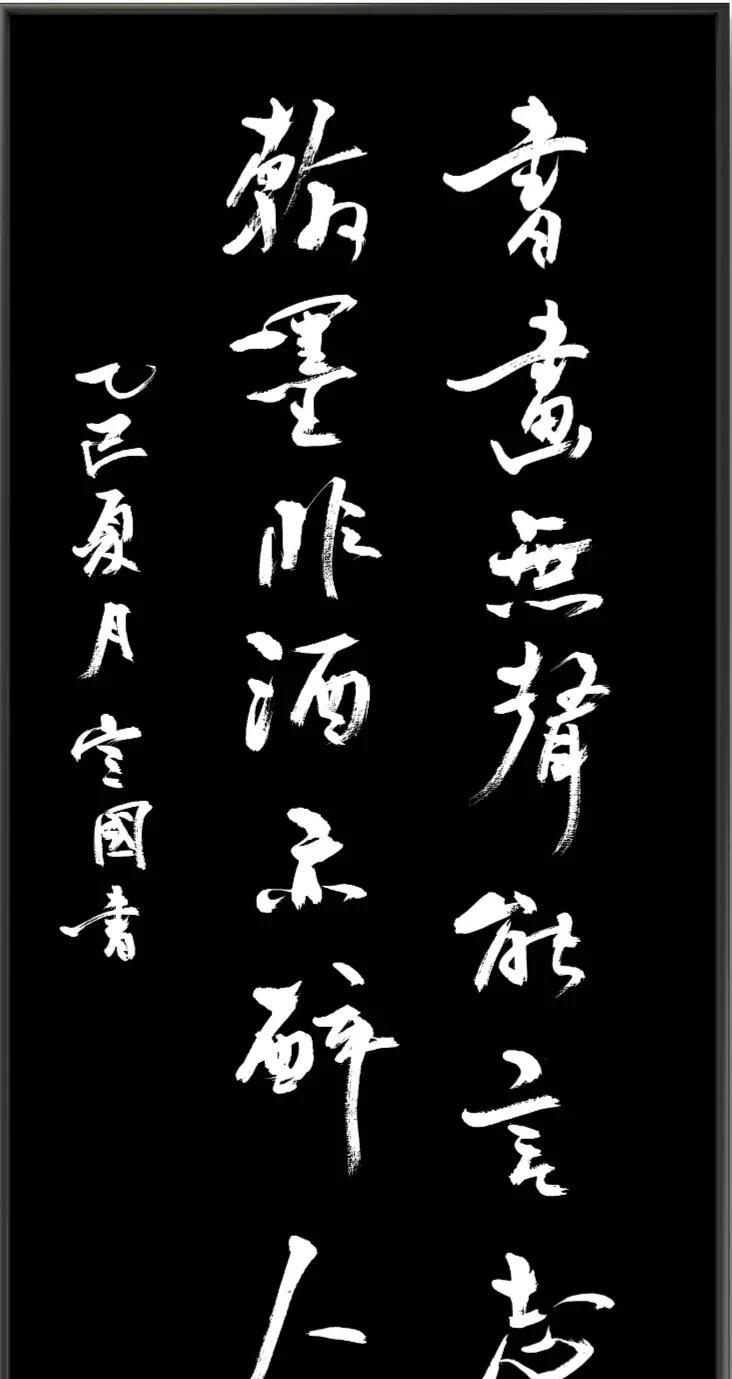 書畫無聲能言志
翰墨非酒亦醉人
乙巳夏月 國書